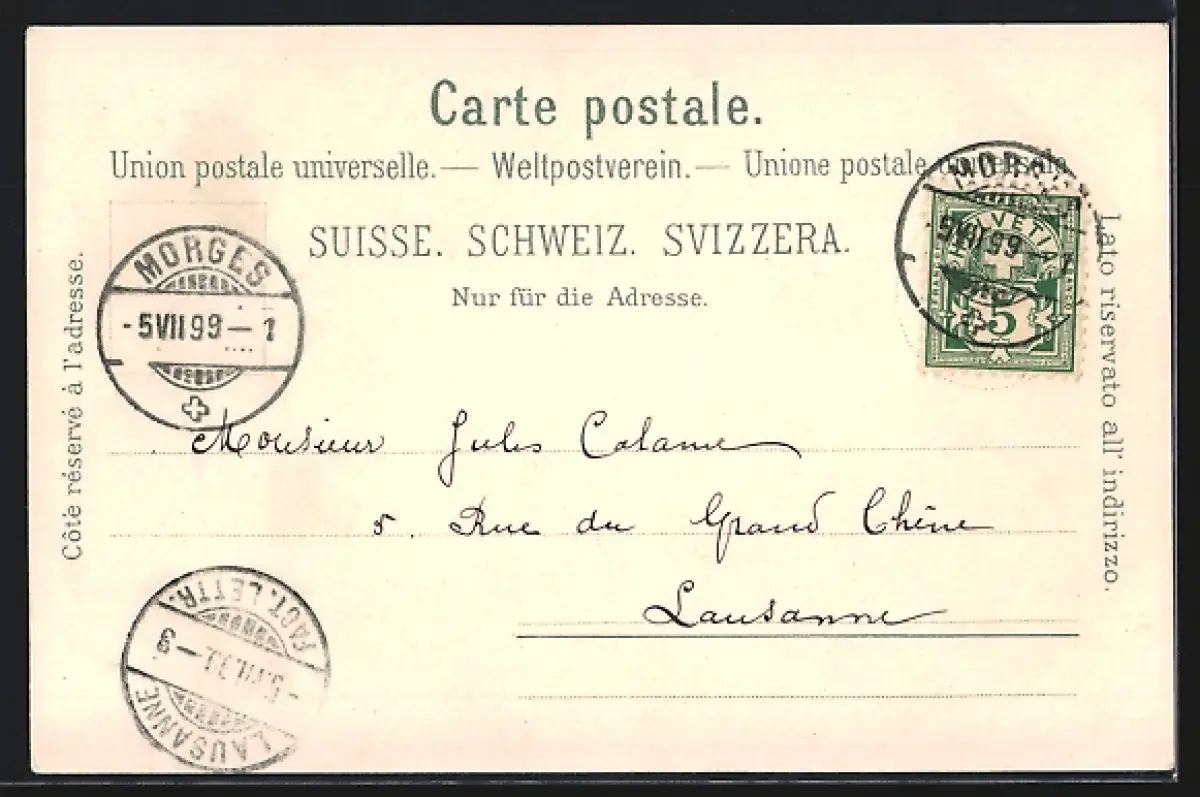 Carte postale.
Union postale universelle. — Weltpostverein. — Unione postale universale
SUISSE. SCHWEIZ. SVIZZERA.
Nur für die Adresse.
Côté réservé à l'adresse.
Lato riservato all' indirizzo.
MORGES
-5VII99-1
MORGES
-5VII99-1
HELVETIA
FRANCO
5
Monsieur Jules Calame
5. Rue du Grand Chêne
Lausanne
FACT. LETTR.
-5.VII. -9
LAUSANNE